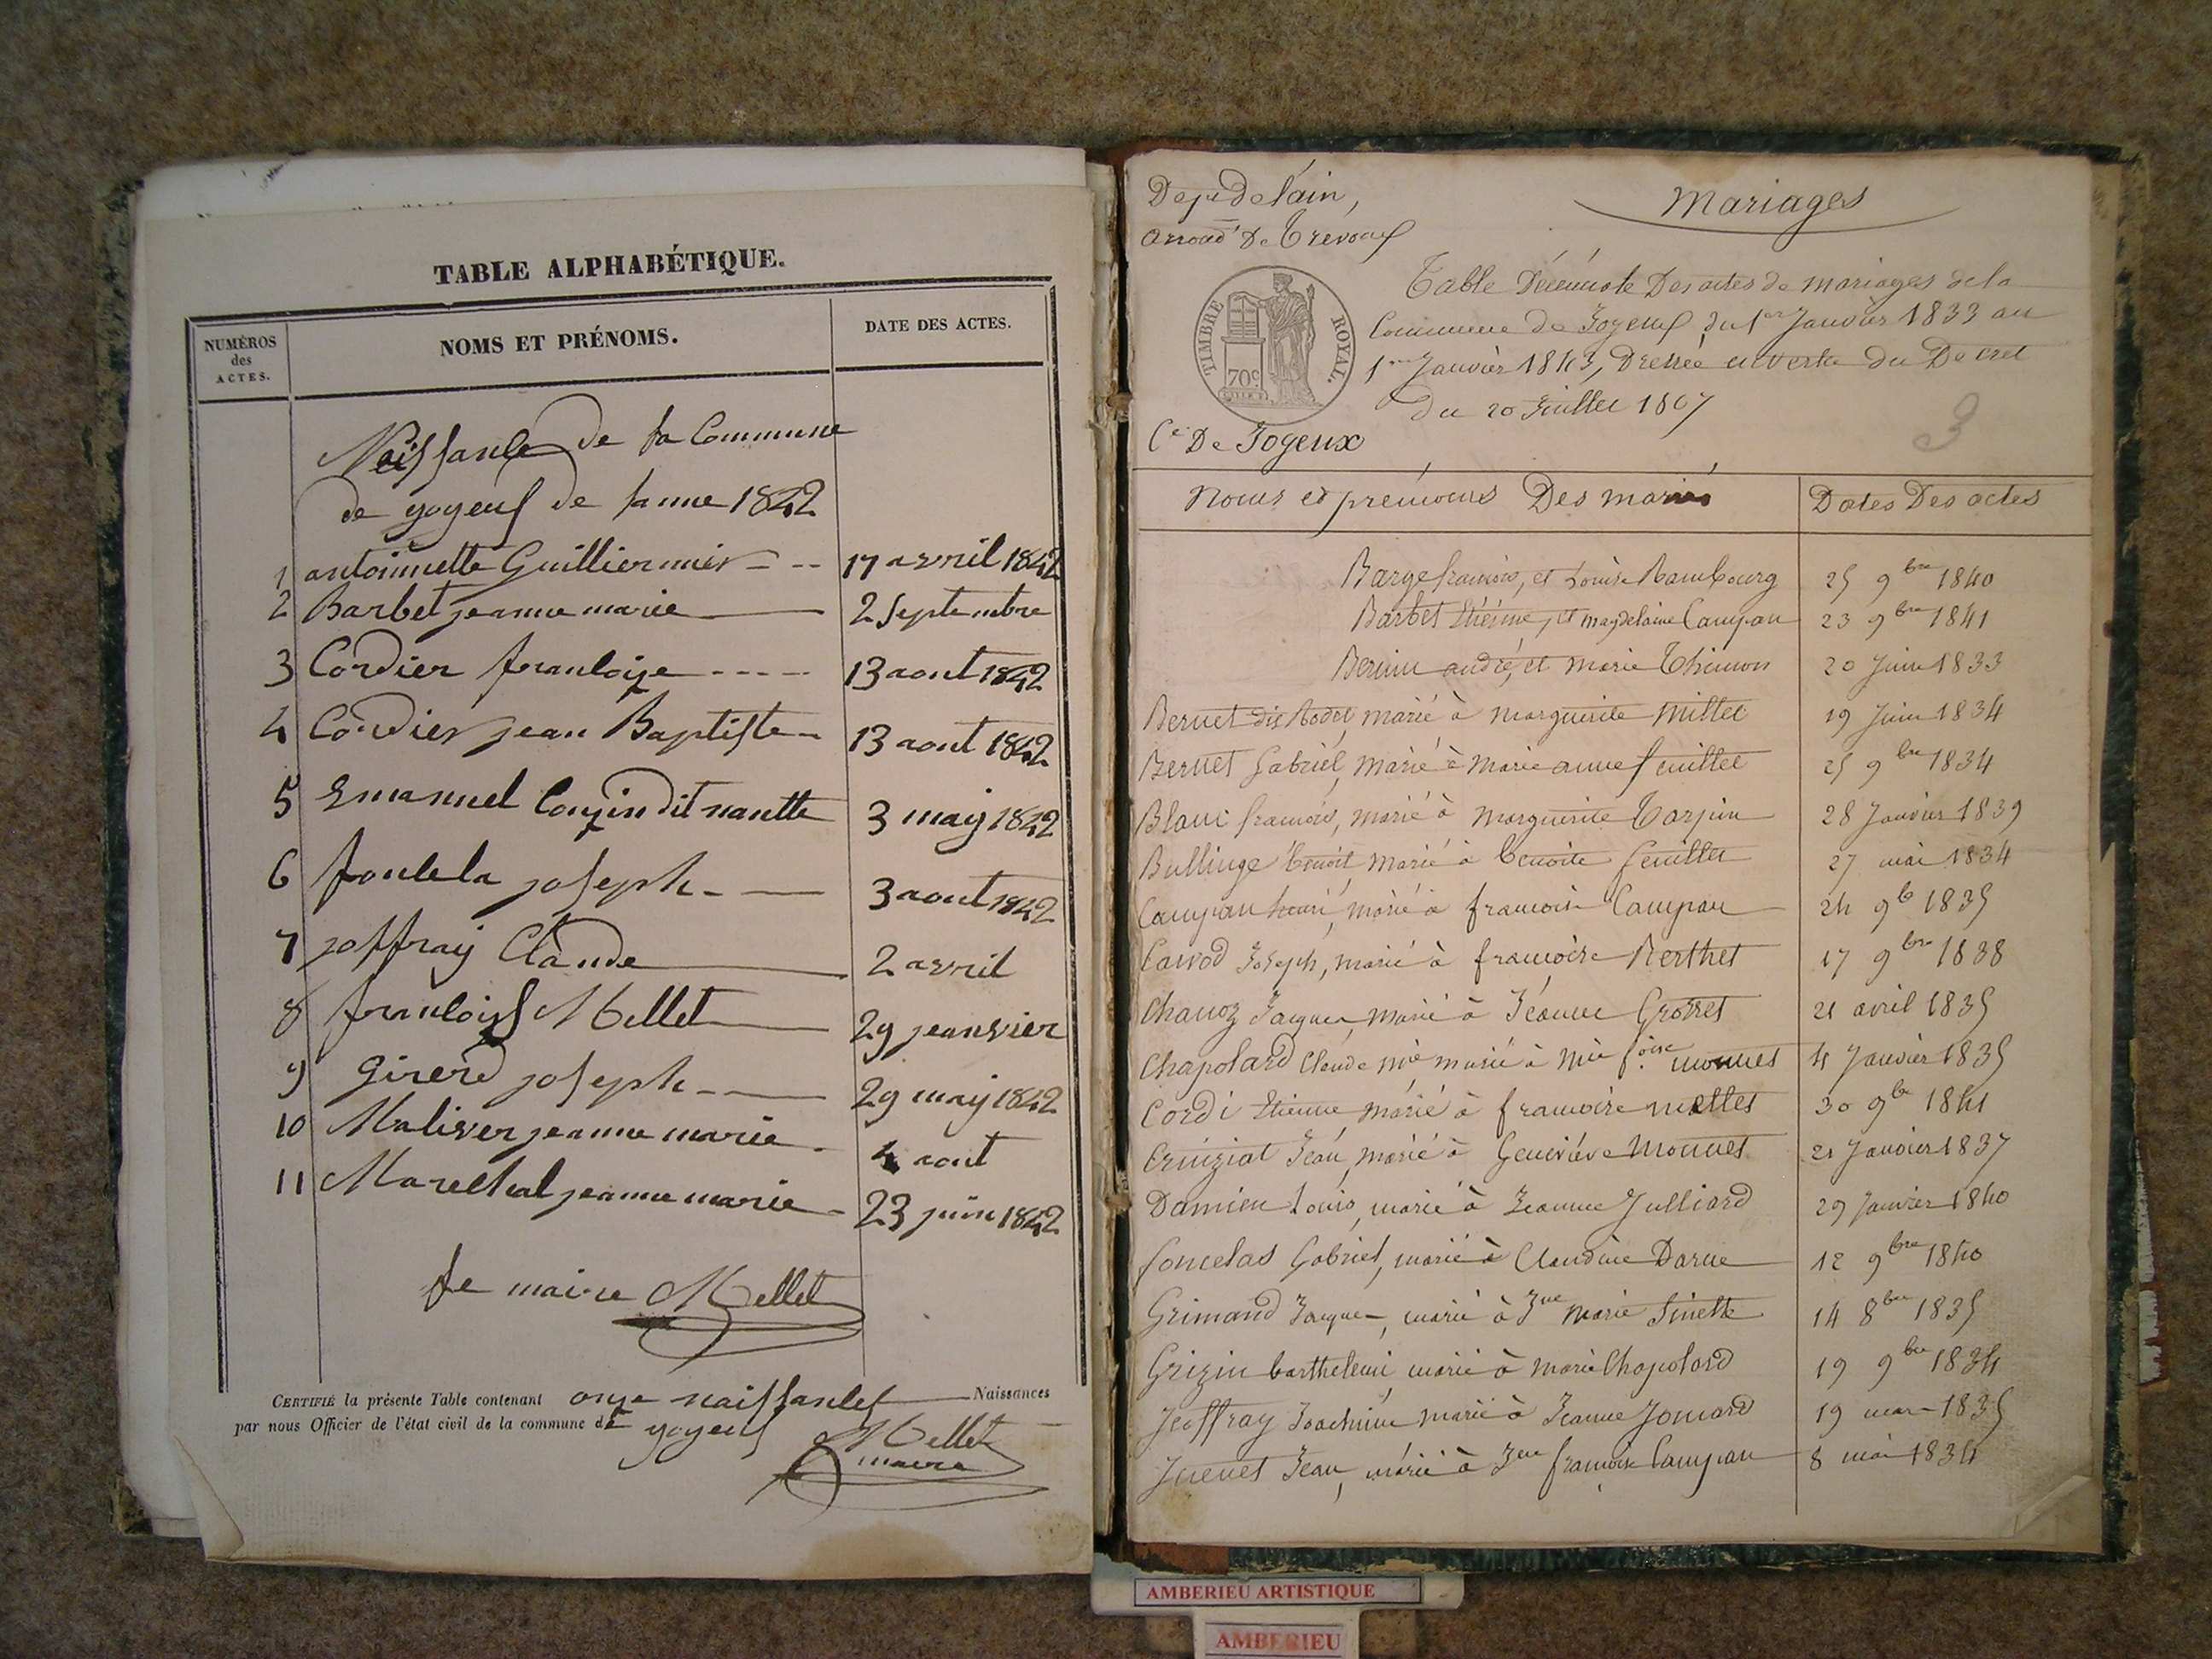 TABLE ALPHABÉTIQUE.
NUMÉROS
des
ACTES.
NOMS ET PRÉNOMS.
DATE DES ACTES.
Naissance de la Commune
de yoyeuf de lanne 1842
1 antoinnette Guilliermier 17 avril 1842
2 Barbet jeanne marie 2 Septembre
3 Cordier francloise 13 aout 1842
4 Cordier jean Baptiste 13 aout 1842
5 Emanuel Couzin dit nantte 3 maij 1842
6 joseph 3 aout 1842
7 joffraij Claude 2 avril
8 francloiss Mellet 29 jeanvier
9 Girerd joseph 29 maij 1842
10 Maliver jeanne marie 4 aout
11 Marechal jeanne marie 23 juin 1842
Le maire Mellet
CERTIFIÉ la présente Table contenant onze naissances Naissances
par nous Officier de l'état civil de la commune de yoyeuf
Mellet
maire
Dept De l'ain,
Mariages
arrond.t De Trevoux
TIMBRE ROYAL.
70c
Table Décennale Des actes de mariages de la
Commune de Joyeux du 1er Janvier 1833 au
1er Janvier 1843, Dressée en vertu du Decret
du 20 Juillet 1807
3
Ce De Joyeux
Noms et prénoms Des mariés
Dates Des actes
Barge francois, et Louise Rambourg 25 9bre 1840
Barbet Etienne, et magdelaine Campan 23 9bre 1841
andré, et Marie Thimon 20 Juin 1833
Bernet dit Rodet, marié à marguerite Millet 19 Juin 1834
Bernet Gabriel, marié à Marie anne feuillet 25 9bre 1834
Blanc francois, marié à Marguerite Tarpin 28 Janvier 1839
Bullinge benoit, marié à benoite feuillet 27 mai 1834
Campan henri, marié à francoise Campan 24 9b 1835
Joseph, marié à francoise Berthet 17 9bre 1838
Chanoz Jacques, marié à Jeanne Grosset 21 avril 1835
Chapolard Claude Mie marié à Mie f.oise monnet 4 Janvier 1835
Cordi Etienne, marié à francoise mettet 30 9b 1841
Cruiziat Jean, marié à Geneviéve Monnet 21 Janvier 1837
Damien Louis, marié à Jeanne Julliard 29 Janvier 1840
foncelas Gabriel, marié à Claudine Darne 12 9bre 1840
Grimand Jacques, marié à Jne Marie Sinette 14 8bre 1835
Grizin barthelemi, marié à Marie Chapolard 19 9bre 1834
Jeoffray Joachim marié à Jeanne Jomard 19 mars 1835
Juenet Jean, marié à Jne francoise Campan 8 mai 1834
AMBERIEU ARTISTIQUE
AMBERIEU